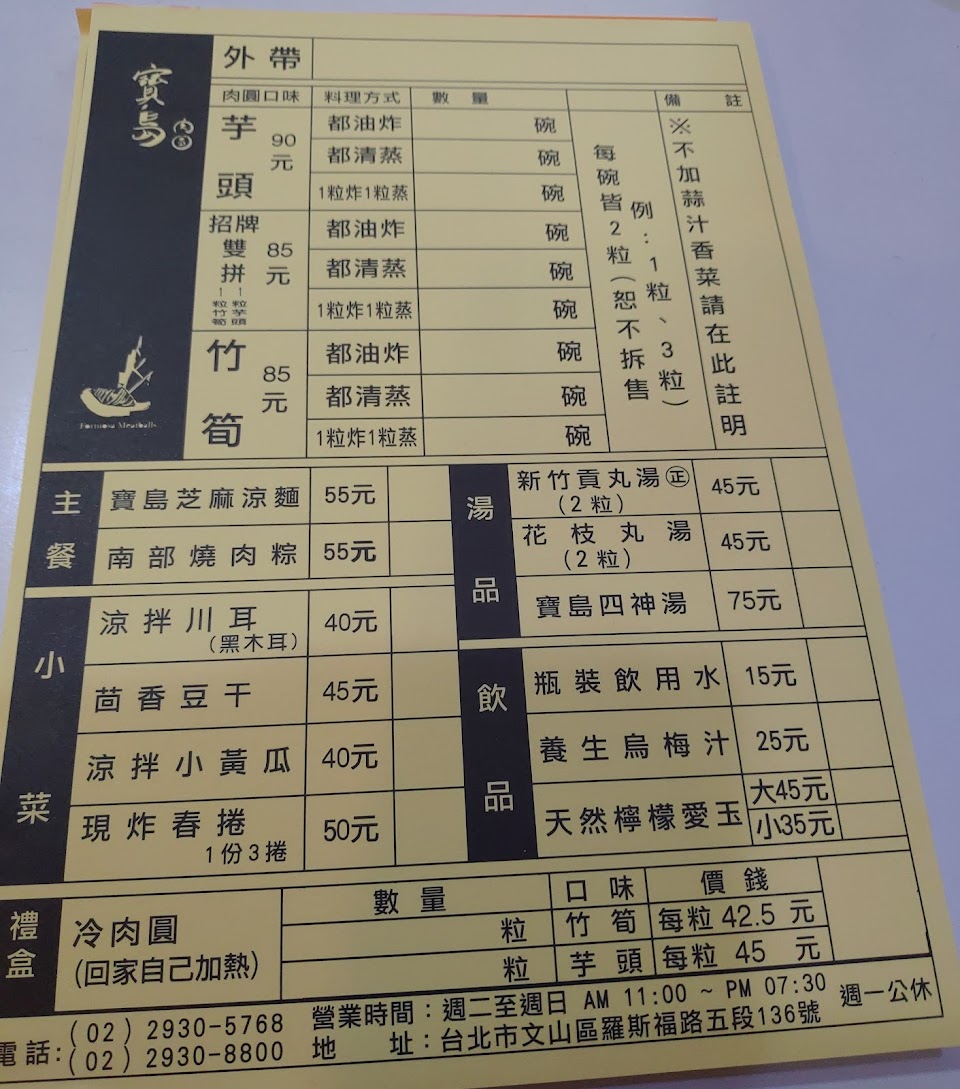 寶島
肉圓
Formosa Meatballs
外帶
肉圓口味 料理方式 數量 備註
芋頭 90元
都油炸 碗
都清蒸 碗
1粒炸1粒蒸 碗
招牌雙拼 85元
1粒芋頭
1粒竹筍
都油炸 碗
都清蒸 碗
1粒炸1粒蒸 碗
竹筍 85元
都油炸 碗
都清蒸 碗
1粒炸1粒蒸 碗
每碗皆2粒(恕不拆售
例:1粒、3粒)
※不加蒜汁香菜請在此註明
主餐
寶島芝麻涼麵 55元
南部燒肉粽 55元
小菜
涼拌川耳 40元
(黑木耳)
茴香豆干 45元
涼拌小黃瓜 40元
現炸春捲 50元
1份3捲
湯品
新竹貢丸湯㊣ 45元
(2粒)
花枝丸湯 45元
(2粒)
寶島四神湯 75元
飲品
瓶裝飲用水 15元
養生烏梅汁 25元
天然檸檬愛玉 大45元
小35元
禮盒
冷肉圓
(回家自己加熱)
數量 口味 價錢
粒 竹筍 每粒 42.5 元
粒 芋頭 每粒 45 元
電話:(02) 2930-5768
(02) 2930-8800
營業時間:週二至週日 AM 11:00 ~ PM 07:30 週一公休
地址:台北市文山區羅斯福路五段136號